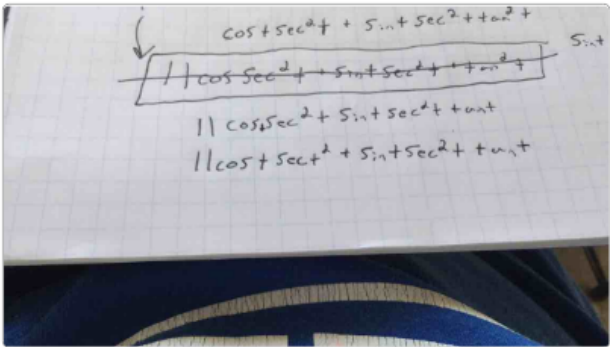 cost sec²t + sint sec²t tan²t
sint
11 cos sec²t + sint sec²t + tan²t
11 cost sec²t + sint sec²t tant
11 cost sect² + sint sec²t tant